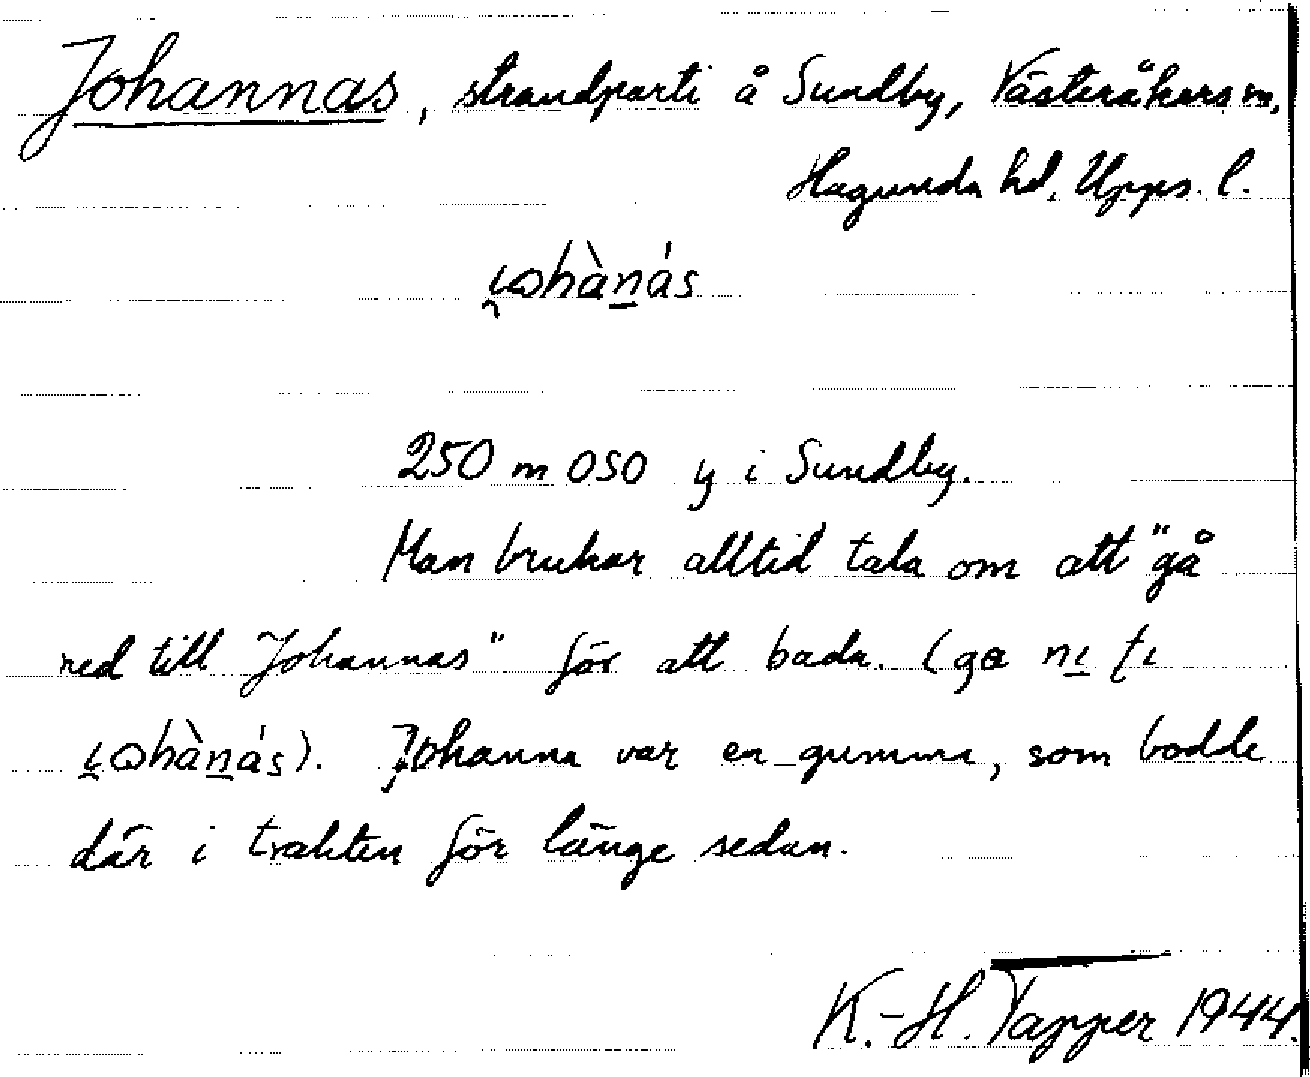 Johannas, strandparti å Sundby, Västeråkers sn,
Hagunda hd. Upps. l.
ɩ̯ωhànás
250 m OSO y i Sundby.
Man brukar alltid tala om att "gå
ned till Johannas" för att bada. (gɑ nɩ tɩ
ɩ̯ωhànás). Johanna var en gumma, som bodde
där i trakten för länge sedan.
K.-H. Tapper 1944.